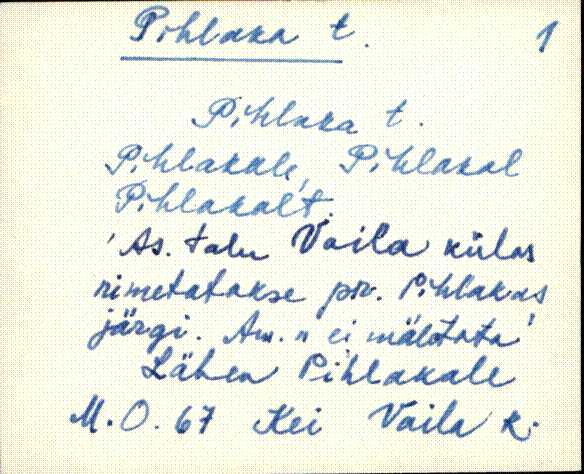 Pihlaka t. 1
Pihlaka t.
Pihlakale, Pihlakal
Pihlakalt.
'As. talu Vaila külas
nimetatakse pr. Pihlakas
järgi. Am. n ei mäletata'
Lähen Pihlakale
M. O. 67 Kei Vaila k.